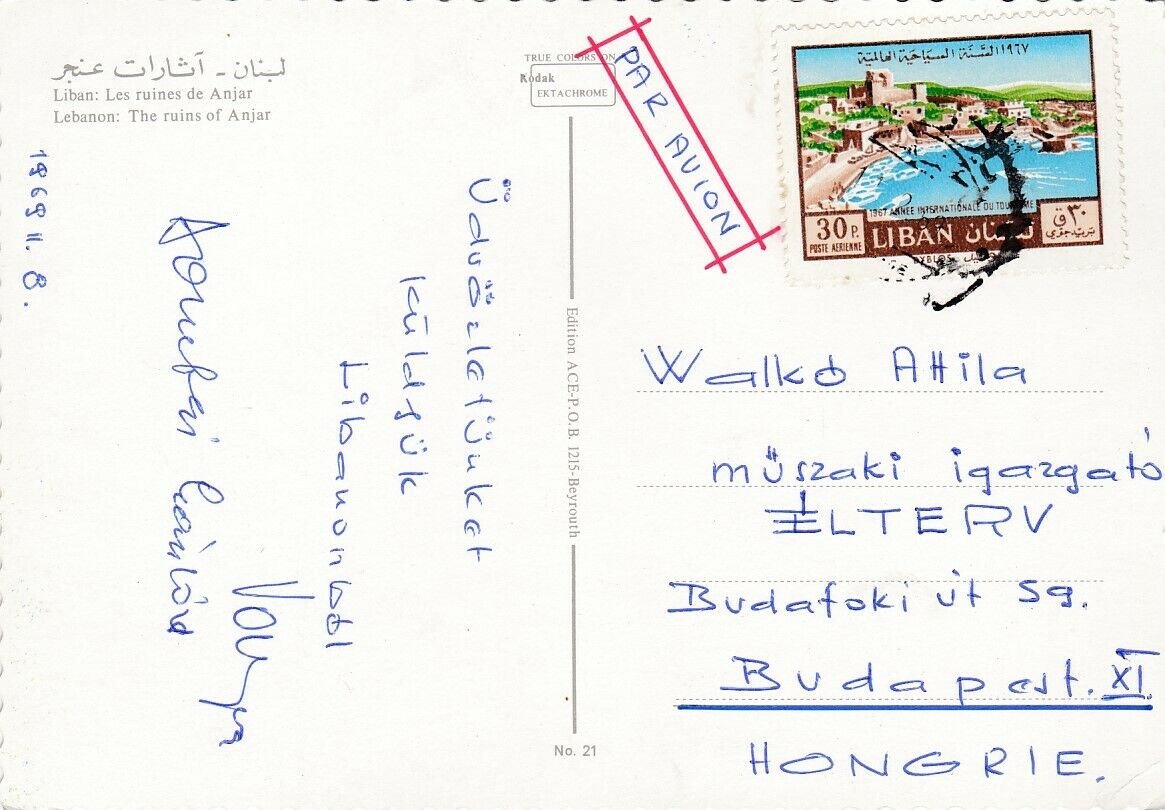 لبنان - آثارات عنجر
Liban: Les ruines de Anjar
Lebanon: The ruins of Anjar
TRUE COLORS ON
Kodak
EKTACHROME
PAR AVION
١٩٦٧ السنة السياحية العالمية
1967 ANNEE INTERNATIONALE DU TOURISME
30 P.
POSTE AERIENNE
LIBAN لبنان
٣٠ ق
بريد جوي
BYBLOS
1969 11. 8.
Üdvözletünket
küldjük
Libanonból
Edition ACE-P.O.B. 1215-Beyrouth
No. 21
Walkó Attila
műszaki igazgató
ÉLTERV
Budafoki út 59.
Budapest. XI.
HONGRIE.